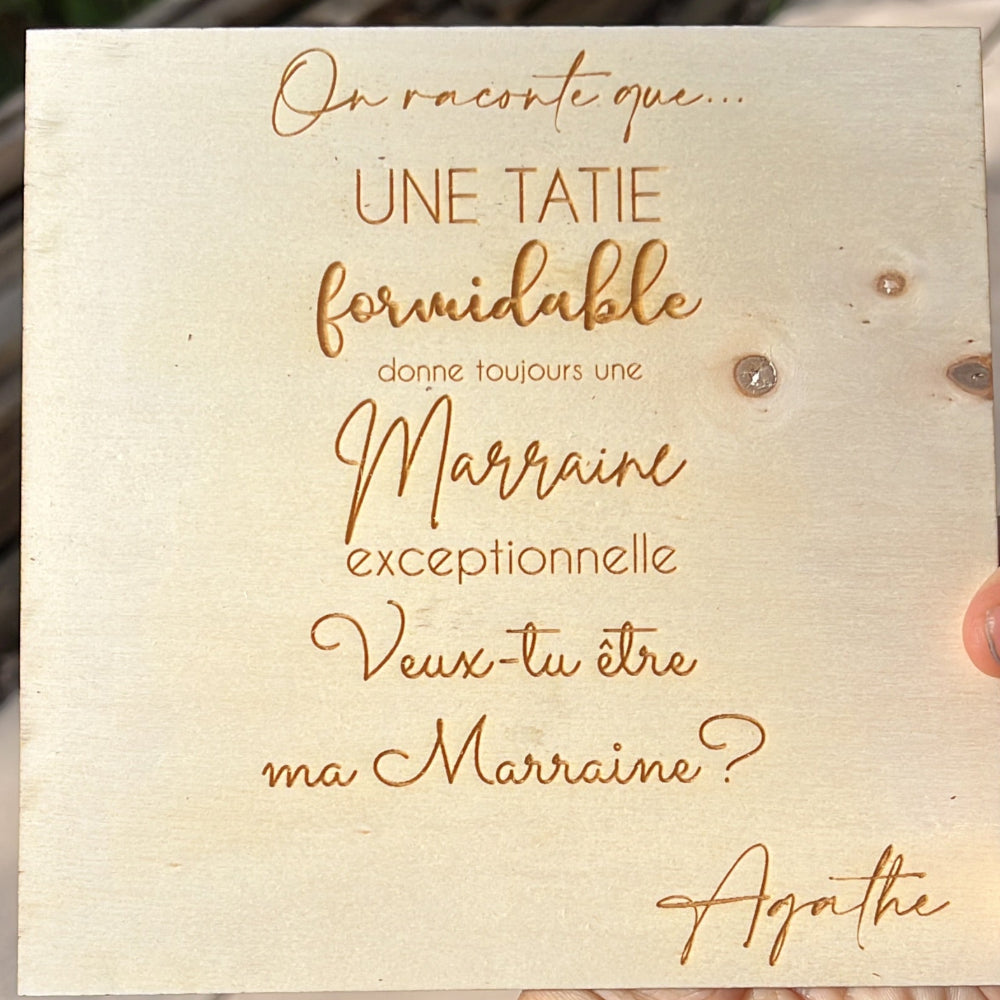 On raconte que...
UNE TATIE
formidable
donne toujours une
Marraine
exceptionnelle
Veux-tu être
ma Marraine?
Agathe